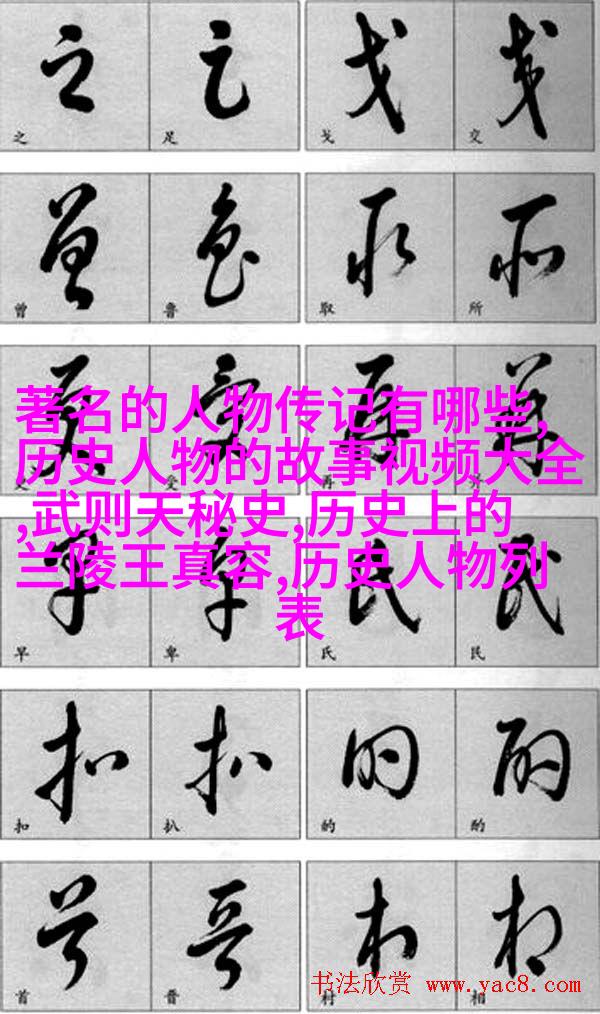 之 足 戈 交
曾 鲁 取 所
著名的人物传记有哪些,
历史人物的故事视频大全
,武则天秘史,历史上的
兰陵王真容,历史人物列
表
受 再
早 卑 氏 民
扣 扒 的 酌
首 晋 村 相
书法欣赏 www.yac8.com